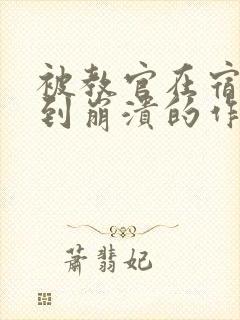 被教官在宿
到崩溃的作
萧翡妃